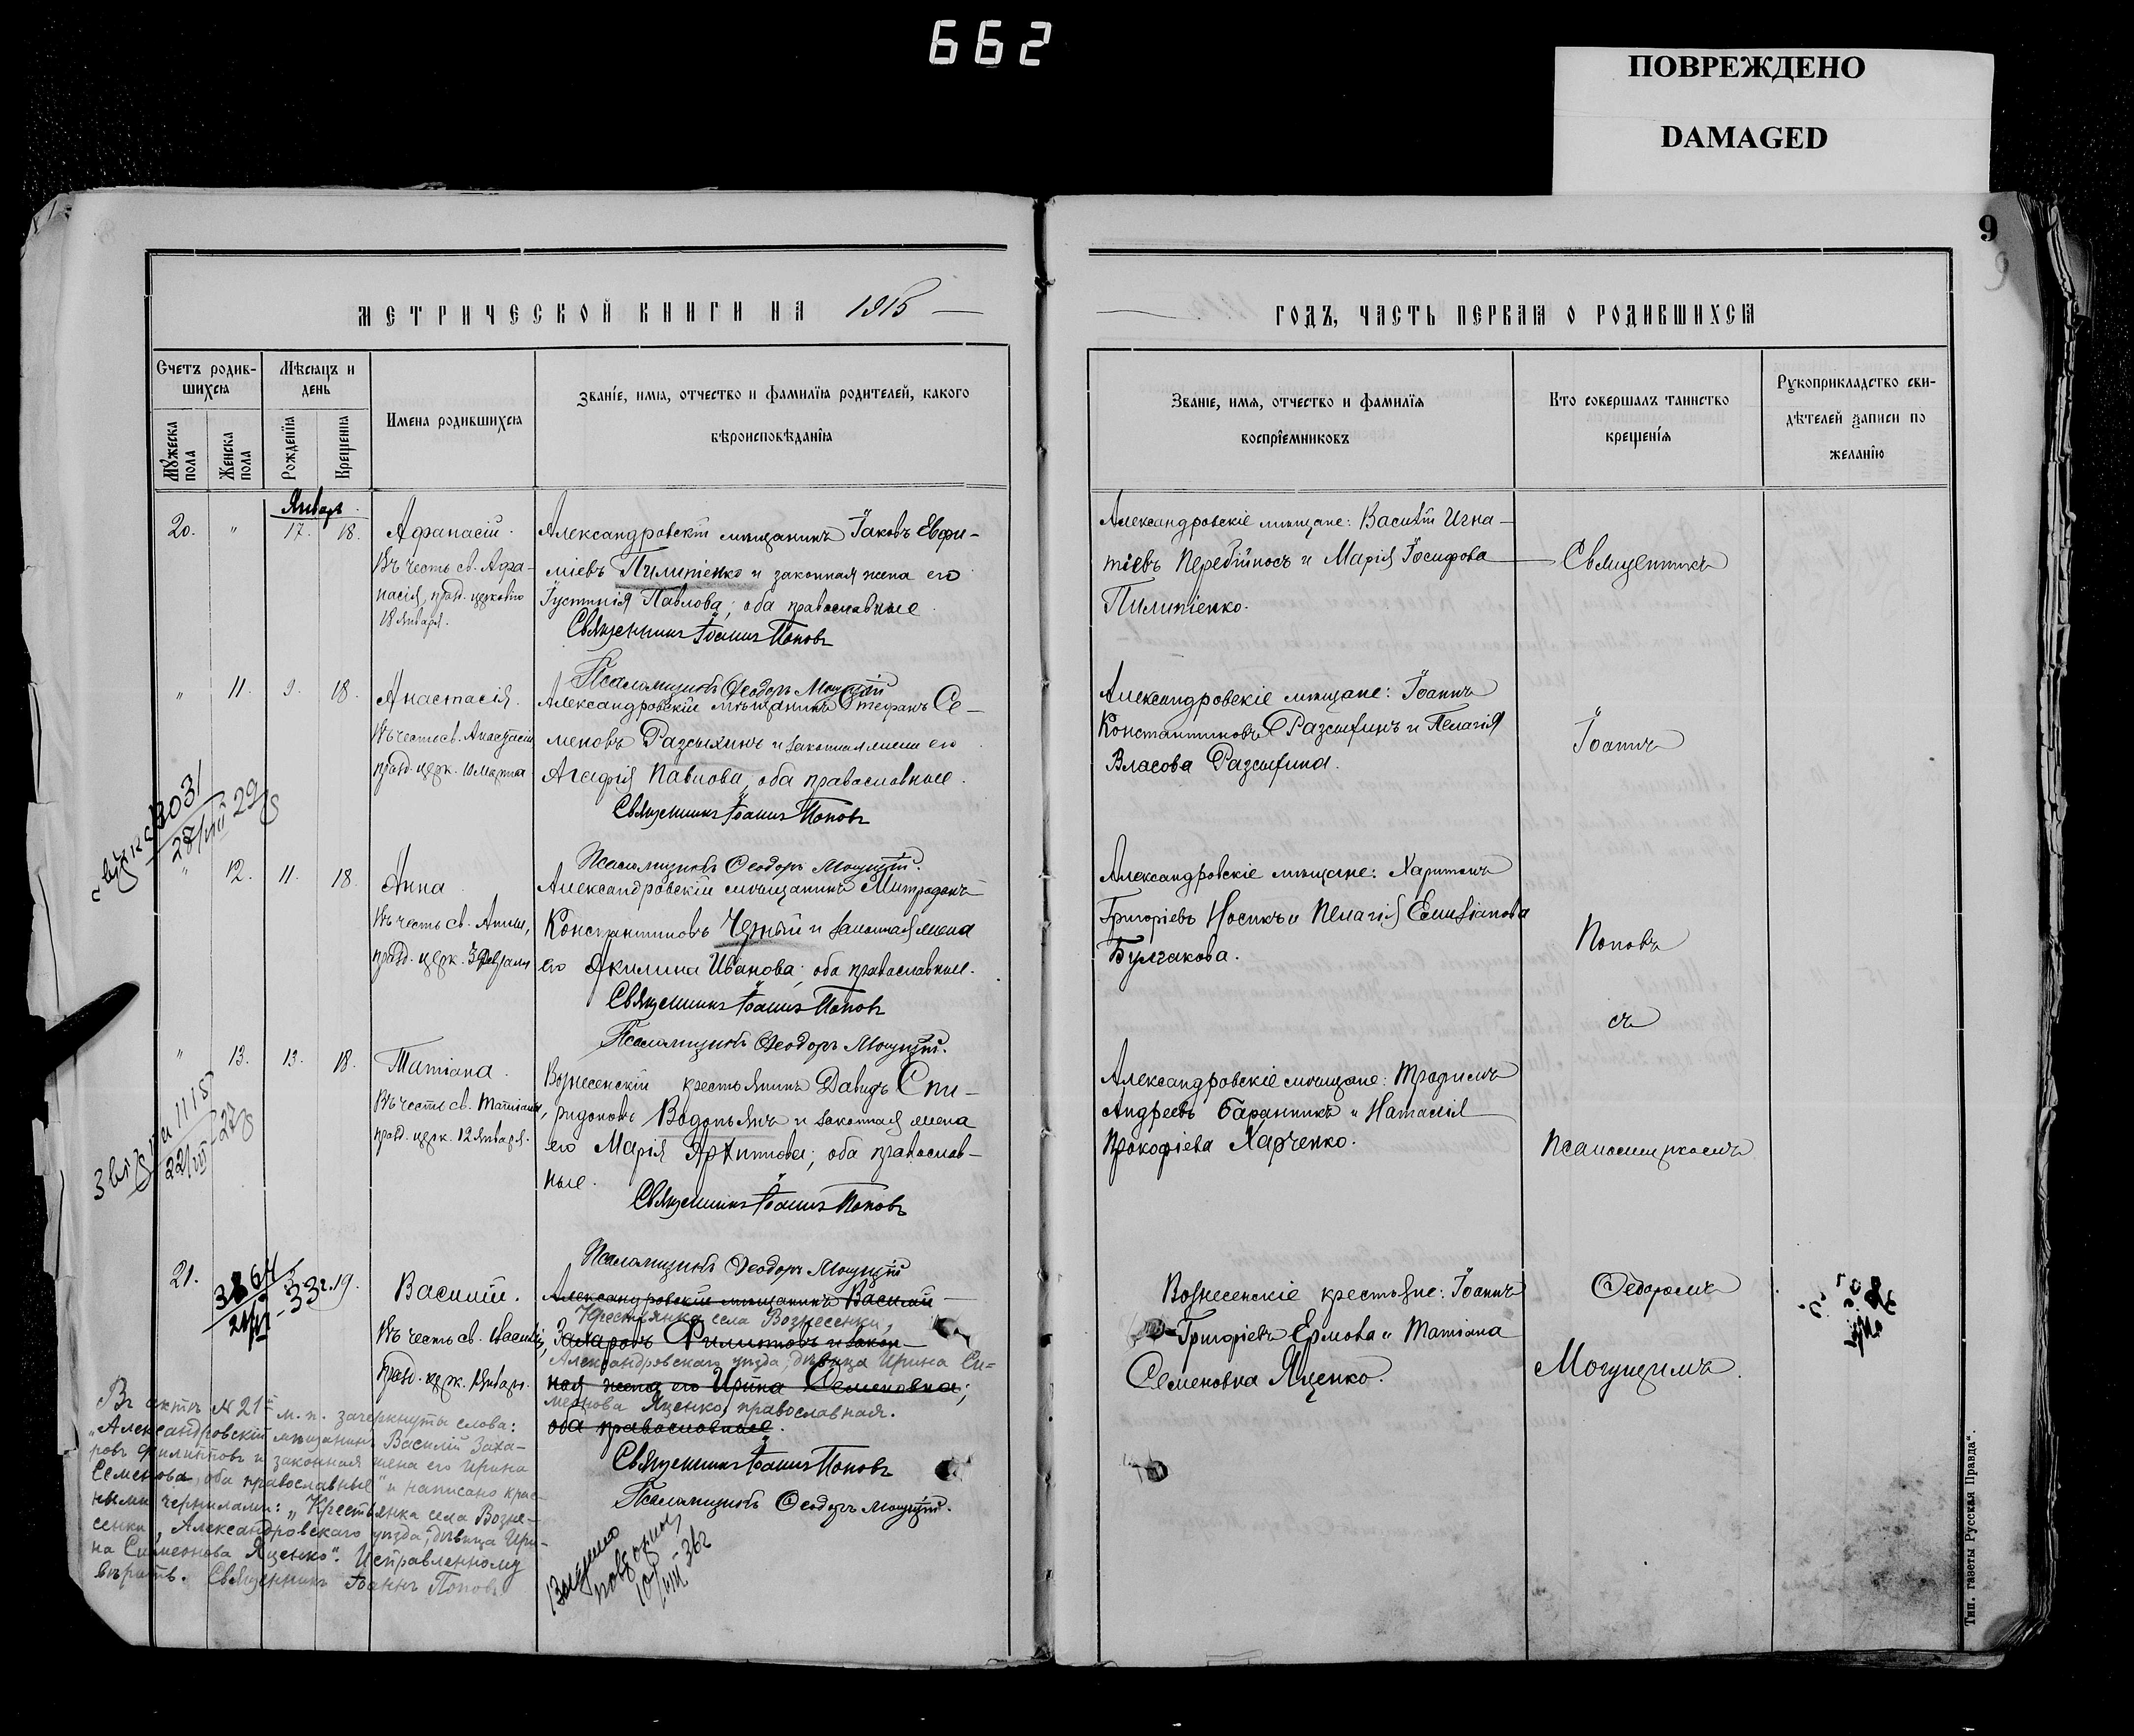 662
ПОВРЕЖДЕНО
DAMAGED
9
МЕТРИЧЕСКОЙ КНИГИ НА 1915
ГОДЪ, ЧАСТЬ ПЕРВАЯ О РОДИВШИХСЯ
Счетъ родив-
шихся
Мѣсяцъ и
день
Имена родившихся
Званіе, имя, отчество и фамилія родителей, какого
вѣроисповѣданія
Мужеска пола
Женска пола
Рожденія
Крещенія
Званіе, имя, отчество и фамилія
воспріемниковъ
Кто совершалъ таинство
крещенія
Рукоприкладство сви-
дѣтелей записи по
желанію
Январь.
20. " 17. 18. Афанасій.
Въ честь св. Афа-
насія, празд. церковію
18 Января.
Александровскій мѣщанинъ Іаковъ Евфи-
міевъ Пилипіенко и законная жена его
Іустинія Павлова; оба православные.
Священникъ Іоаннъ Поповъ
Псаломщикъ Ѳеодоръ Могущій
Александровскіе мѣщане: Василій Игна-
тіевъ Перебійносъ и Марія Іосифова
Пилипіенко.
Священникъ
" 11. 9. 18. Анастасія.
Въ честь св. Анастасіи
празд. церк. 10 марта
Александровскій мѣщанинъ Стефанъ Се-
меновъ Разсыхинъ и законная жена его
Агафія Павлова, оба православные.
Священникъ Іоаннъ Поповъ
Псаломщикъ Ѳеодоръ Могущій.
Александровскіе мѣщане: Іоаннъ
Константиновъ Разсыхинъ и Пелагія
Власова Разсыхина.
Іоаннъ
" 12. 11. 18. Анна
Въ честь св. Анны,
празд. церк. 3 Февраля
Александровскій мѣщанинъ Митрофанъ
Константиновъ Черный и законная жена
его Акилина Иванова; оба православные.
Священникъ Іоаннъ Поповъ
Псаломщикъ Ѳеодоръ Могущій.
Александровскіе мѣщане: Харитонъ
Григоріевъ Носикъ и Пелагія Емиліанова
Булгакова.
Поповъ
съ
" 13. 13. 18. Татіана.
Въ честь св. Татіаны,
празд. церк. 12 Января.
Вознесенскій крестьянинъ Давидъ Спи-
ридоновъ Водопьянъ и законная жена
его Марія Архипова; оба православ-
ные.
Священникъ Іоаннъ Поповъ
Псаломщикъ Ѳеодоръ Могущій
Александровскіе мѣщане: Трофимъ
Андреевъ Баранникъ и Наталія
Прокофіева Харченко.
Псаломщикомъ
21. 19. Василій.
Въ честь св. Василія,
празд. церк. 1 Января.
Александровскій мѣщанинъ Василій
Крестьянка села Вознесенки,
Захаровъ Филиповъ и закон-
Александровскаго уѣзда, дѣвица Ирина Си-
ная жена его Ирина Семеновна;
меонова Яценко, православная.
оба православные.
Священникъ Іоаннъ Поповъ
Псаломщикъ Ѳеодоръ Могущій.
Вознесенскіе крестьяне: Іоаннъ
Григоріевъ Ермова и Татіана
Семеновна Яценко.
Ѳедоромъ
Могущимъ.
Въ актѣ № 21 м. п. зачеркнуты слова:
„Александровскій мѣщанинъ Василій Заха-
ровъ Филиповъ и законная жена его Ирина
Семенова, оба православные" и написано крас-
ными чернилами: „Крестьянка села Возне-
сенки, Александровскаго уѣзда, дѣвица Ири-
на Симеонова Яценко". Исправленному
вѣрить. Священникъ Іоаннъ Поповъ
Тип. газеты Русская Правда".